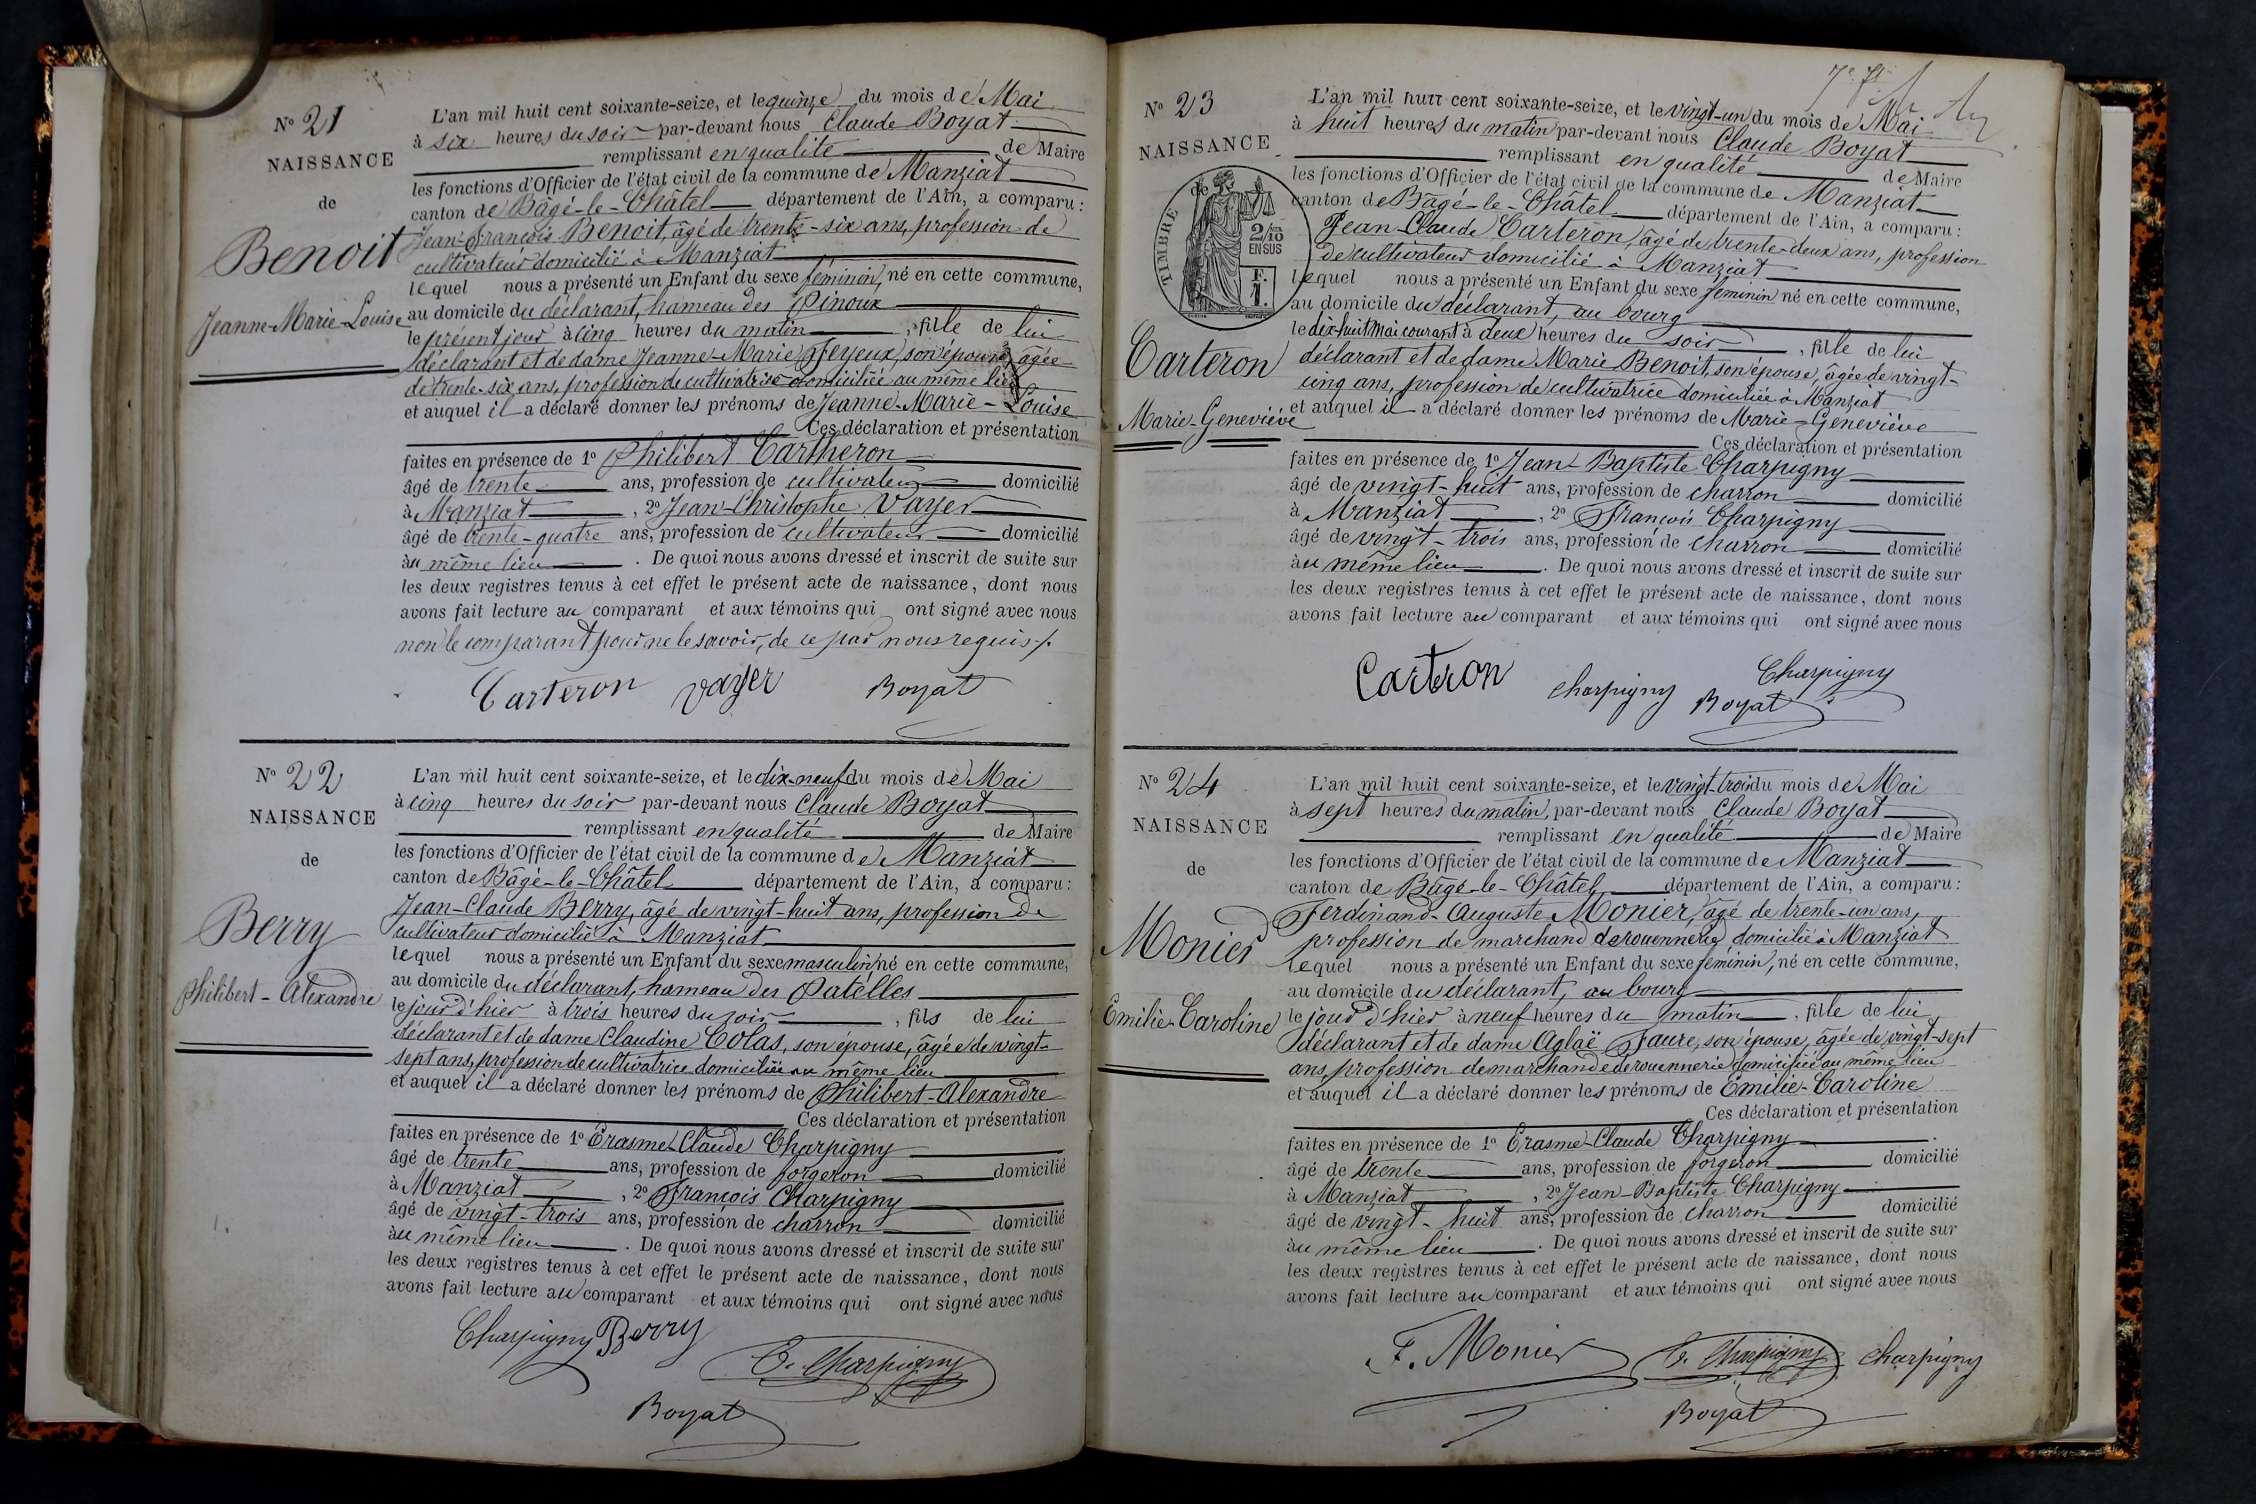 N° 21
NAISSANCE
de
Benoit
Jeanne-Marie-Louise
L'an mil huit cent soixante-seize, et le quinze du mois de Mai
à six heures du soir par-devant nous Claude Boyat
remplissant en qualité de Maire
les fonctions d'Officier de l'état civil de la commune de Manziat
canton de Bâgé-le-Châtel département de l'Ain, a comparu :
Jean-François Benoit, âgé de trente-six ans, profession de
cultivateur domicilié à Manziat
lequel nous a présenté un Enfant du sexe féminin, né en cette commune,
au domicile du déclarant, hameau des Pinoux
le présent jour à cinq heures du matin, fille de lui
déclarant et de dame Jeanne-Marie Feyeux, son épouse, âgée
de trente-six ans, profession de cultivatrice domiciliée au même lieu
et auquel il a déclaré donner les prénoms de Jeanne-Marie-Louise
Ces déclaration et présentation
faites en présence de 1° Philibert Cartheron
âgé de trente ans, profession de cultivateur domicilié
à Manziat, 2° Jean-Christophe Vayer
âgé de trente-quatre ans, profession de cultivateur domicilié
au même lieu. De quoi nous avons dressé et inscrit de suite sur
les deux registres tenus à cet effet le présent acte de naissance, dont nous
avons fait lecture au comparant et aux témoins qui ont signé avec nous
non le comparant pour ne le savoir, de ce par nous requis /.
Carteron vayer Boyat
N° 22
NAISSANCE
de
Berry
Philibert-Alexandre
L'an mil huit cent soixante-seize, et le dix-neuf du mois de Mai
à cinq heures du soir par-devant nous Claude Boyat
remplissant en qualité de Maire
les fonctions d'Officier de l'état civil de la commune de Manziat
canton de Bâgé-le-Châtel département de l'Ain, a comparu :
Jean-Claude Berry, âgé de vingt-huit ans, profession de
cultivateur domicilié à Manziat
lequel nous a présenté un Enfant du sexe masculin, né en cette commune,
au domicile du déclarant, hameau des Patelles
le jour d'hier à trois heures du soir, fils de lui
déclarant et de dame Claudine Colas, son épouse, âgée de vingt-
sept ans, profession de cultivatrice domiciliée au même lieu
et auquel il a déclaré donner les prénoms de Philibert-Alexandre
Ces déclaration et présentation
faites en présence de 1° Erasme-Claude Charpigny
âgé de trente ans, profession de forgeron domicilié
à Manziat, 2° François Charpigny
âgé de vingt-trois ans, profession de charron domicilié
au même lieu. De quoi nous avons dressé et inscrit de suite sur
les deux registres tenus à cet effet le présent acte de naissance, dont nous
avons fait lecture au comparant et aux témoins qui ont signé avec nous
Charpigny Berry
E. Charpigny
Boyat
N° 23
NAISSANCE
de
TIMBRE
2/10
EN SUS
F.
1.
Carteron
Marie-Geneviève
L'an mil huit cent soixante-seize, et le vingt-un du mois de Mai
à huit heures du matin par-devant nous Claude Boyat
remplissant en qualité de Maire
les fonctions d'Officier de l'état civil de la commune de Manziat
canton de Bâgé-le-Châtel département de l'Ain, a comparu :
Jean-Claude Carteron, âgé de trente-deux ans, profession
de cultivateur domicilié à Manziat
lequel nous a présenté un Enfant du sexe féminin né en cette commune,
au domicile du déclarant, au bourg
le dix-huit Mai courant à deux heures du soir, fille de lui
déclarant et de dame Marie Benoit, son épouse, âgée de vingt-
cinq ans, profession de cultivatrice domiciliée à Manziat
et auquel il a déclaré donner les prénoms de Marie-Geneviève
Ces déclaration et présentation
faites en présence de 1° Jean-Baptiste Charpigny
âgé de vingt-huit ans, profession de charron domicilié
à Manziat, 2° François Charpigny
âgé de vingt-trois ans, profession de charron domicilié
au même lieu. De quoi nous avons dressé et inscrit de suite sur
les deux registres tenus à cet effet le présent acte de naissance, dont nous
avons fait lecture au comparant et aux témoins qui ont signé avec nous
Cartron charpigny Charpigny
Boyat
N° 24
NAISSANCE
de
Monier
Emilie-Caroline
L'an mil huit cent soixante-seize, et le vingt-trois du mois de Mai
à sept heures du matin, par-devant nous Claude Boyat
remplissant en qualité de Maire
les fonctions d'Officier de l'état civil de la commune de Manziat
canton de Bâgé-le-Châtel département de l'Ain, a comparu :
Ferdinand-Auguste Monier, âgé de trente-un ans,
profession de marchand de rouennerie, domicilié à Manziat
lequel nous a présenté un Enfant du sexe féminin, né en cette commune,
au domicile du déclarant, au bourg
le jour d'hier à neuf heures du matin, fille de lui
déclarant et de dame Aglaë Faure, son épouse, âgée de vingt-sept
ans, profession de marchande de rouennerie domiciliée au même lieu
et auquel il a déclaré donner les prénoms de Emilie-Caroline
Ces déclaration et présentation
faites en présence de 1° Erasme-Claude Charpigny
âgé de trente ans, profession de forgeron domicilié
à Manziat, 2° Jean-Baptiste Charpigny
âgé de vingt-huit ans, profession de charron domicilié
au même lieu. De quoi nous avons dressé et inscrit de suite sur
les deux registres tenus à cet effet le présent acte de naissance, dont nous
avons fait lecture au comparant et aux témoins qui ont signé avec nous
F. Monier E. Charpigny charpigny
Boyat